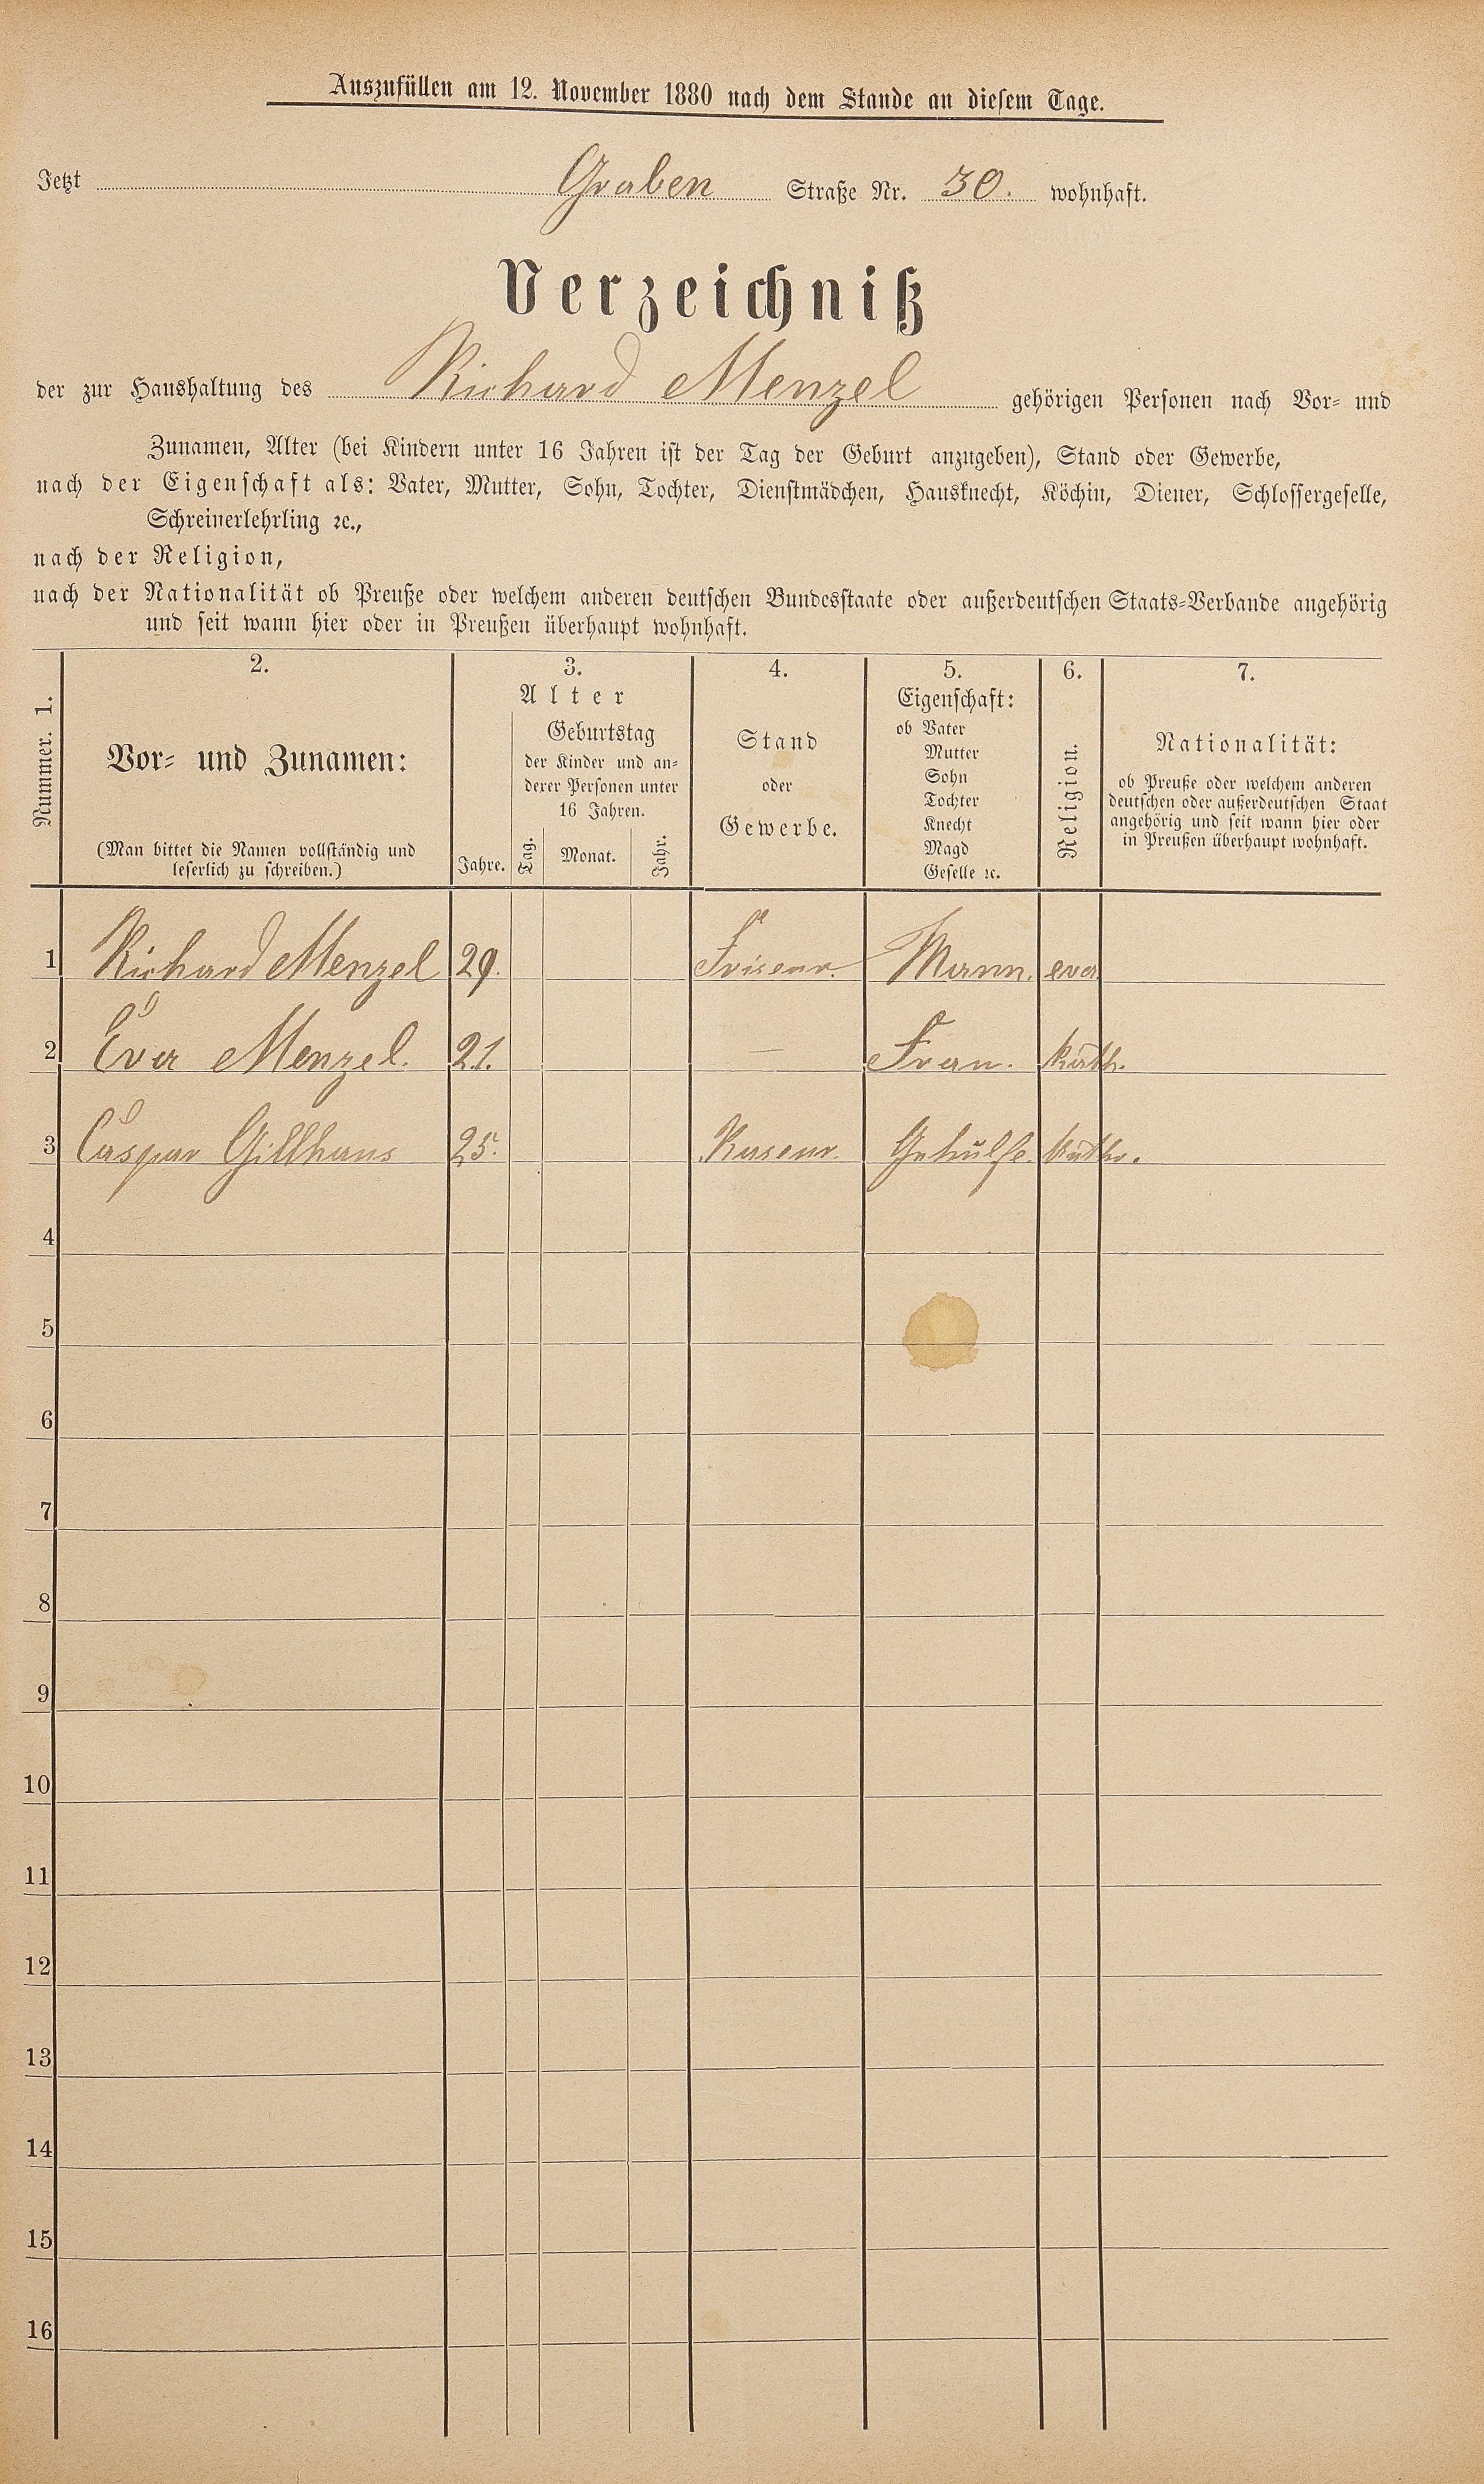 Auszufüllen am 12. November 1880 nach dem Stande an diesem Tage.
Jetzt Graben Straße Nr. 30. wohnhaft.
Verzeichniß
der zur Haushaltung des Richard Menzel gehörigen Personen nach Vor- und
Zunamen, Alter (bei Kindern unter 16 Jahren ist der Tag der Geburt anzugeben), Stand oder Gewerbe,
nach der Eigenschaft als: Vater, Mutter, Sohn, Tochter, Dienstmädchen, Hausknecht, Köchin, Diener, Schlossergeselle,
Schreinerlehrling ꝛc.,
nach der Religion,
nach der Nationalität ob Preuße oder welchem anderen deutschen Bundesstaate oder außerdeutschen Staats-Verbande angehörig
und seit wann hier oder in Preußen überhaupt wohnhaft.
Nummer. 1.
2.
Vor- und Zunamen:
(Man bittet die Namen vollständig und
leserlich zu schreiben.)
3.
Alter
Jahre.
Geburtstag
der Kinder und an-
derer Personen unter
16 Jahren.
Tag. Monat. Jahr.
4.
Stand
oder
Gewerbe.
5.
Eigenschaft:
ob Vater
Mutter
Sohn
Tochter
Knecht
Magd
Geselle ꝛc.
6.
Religion.
7.
Nationalität:
ob Preuße oder welchem anderen
deutschen oder außerdeutschen Staat
angehörig und seit wann hier oder
in Preußen überhaupt wohnhaft.
1 Richard Menzel 29. Friseur. Mann. eva.
2 Eva Menzel. 21. — Frau. Kath.
3 Caspar Gillhaus 25. Gehülfe. Kath.
4
5
6
7
8
9
10
11
12
13
14
15
16